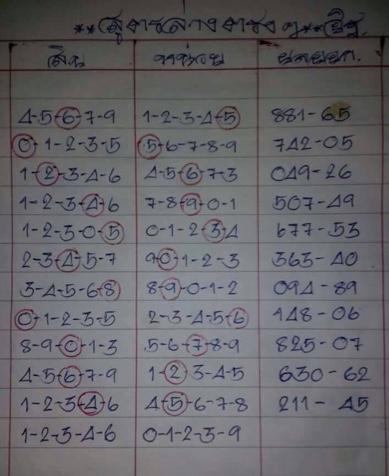 4-5-6-7-9 1-2-3-4-5 881-65
0-1-2-3-5 5-6-7-8-9 742-05
1-2-3-4-6 4-5-6-7-3 049-26
1-2-3-4-6 7-8-9-0-1 507-49
1-2-3-0-5 0-1-2-3-4 677-53
2-3-4-5-7 9-0-1-2-3 363-40
3-4-5-6-8 8-9-0-1-2 094-89
0-1-2-3-5 2-3-4-5-6 148-06
8-9-0-1-3 5-6-7-8-9 825-07
4-5-6-7-9 1-2-3-4-5 630-62
1-2-3-4-6 4-5-6-7-8 211-45
1-2-3-4-6 0-1-2-3-9